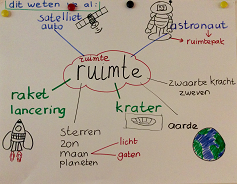 dit weten we al:
satelliet
auto
astronaut
ruimtepak
ruimte
ruimte
zwaarte kracht
zweven
raket
lancering
krater
aarde
Sterren
zon
maan
planeten
licht
gaten